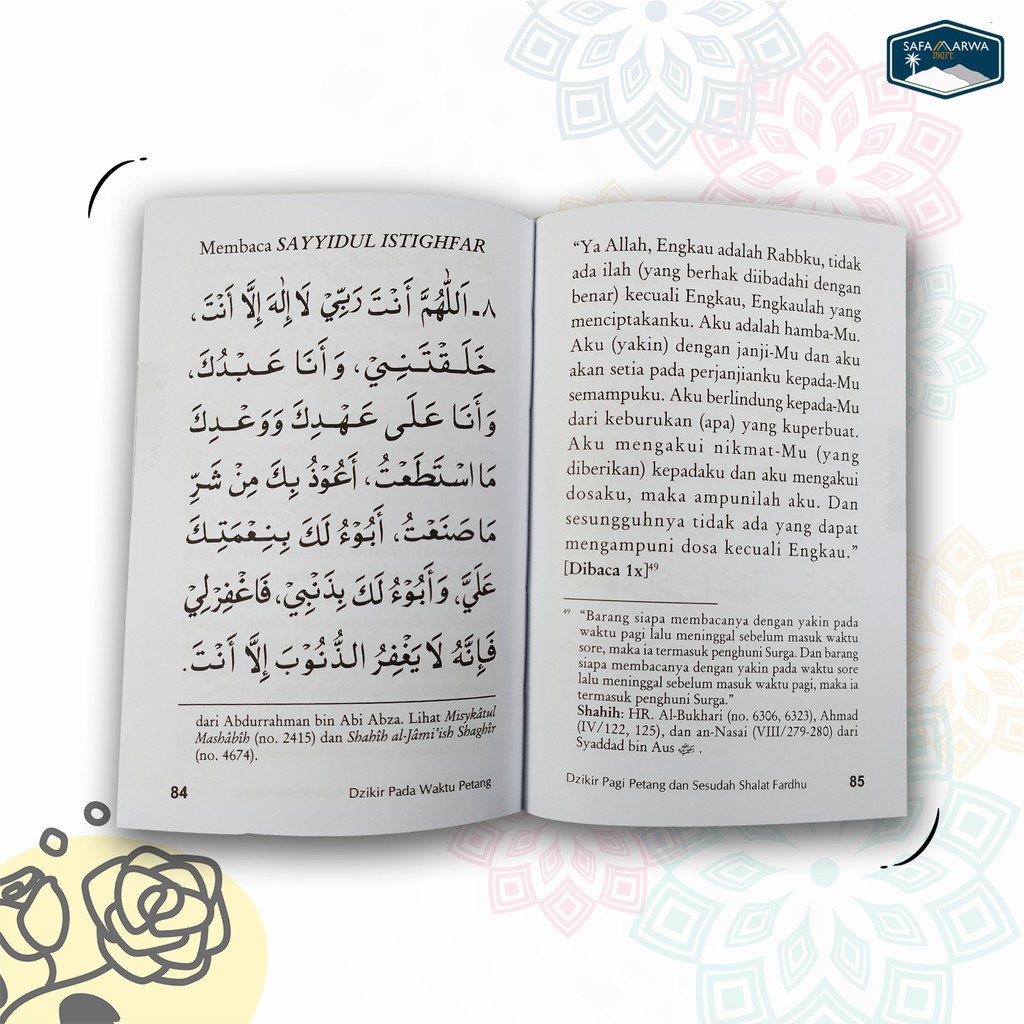 SAFA MARWA
mart
Membaca SAYYIDUL ISTIGHFAR
٨- اَللّٰهُمَّ أَنْتَ رَبِّيْ لَا إِلٰهَ إِلَّا أَنْتَ،
خَلَقْتَنِيْ، وَأَنَا عَبْدُكَ،
وَأَنَا عَلَى عَهْدِكَ وَوَعْدِكَ
مَا اسْتَطَعْتُ، أَعُوْذُ بِكَ مِنْ شَرِّ
مَا صَنَعْتُ، أَبُوْءُ لَكَ بِنِعْمَتِكَ
عَلَيَّ، وَأَبُوْءُ لَكَ بِذَنْبِيْ، فَاغْفِرْلِيْ
فَإِنَّهُ لَا يَغْفِرُ الذُّنُوْبَ إِلَّا أَنْتَ.
dari Abdurrahman bin Abi Abza. Lihat Misykâtul
Mashâbîh (no. 2415) dan Shahîh al-Jâmi’ish Shaghîr
(no. 4674).
84 Dzikir Pada Waktu Petang
“Ya Allah, Engkau adalah Rabbku, tidak
ada ilah (yang berhak diibadahi dengan
benar) kecuali Engkau, Engkaulah yang
menciptakanku. Aku adalah hamba-Mu.
Aku (yakin) dengan janji-Mu dan aku
akan setia pada perjanjianku kepada-Mu
semampuku. Aku berlindung kepada-Mu
dari keburukan (apa) yang kuperbuat.
Aku mengakui nikmat-Mu (yang
diberikan) kepadaku dan aku mengakui
dosaku, maka ampunilah aku. Dan
sesungguhnya tidak ada yang dapat
mengampuni dosa kecuali Engkau.”
[Dibaca 1x]⁴⁹
⁴⁹ “Barang siapa membacanya dengan yakin pada
waktu pagi lalu meninggal sebelum masuk waktu
sore, maka ia termasuk penghuni Surga. Dan barang
siapa membacanya dengan yakin pada waktu sore
lalu meninggal sebelum masuk waktu pagi, maka ia
termasuk penghuni Surga.”
Shahih: HR. Al-Bukhari (no. 6306, 6323), Ahmad
(IV/122, 125), dan an-Nasai (VIII/279-280) dari
Syaddad bin Aus .
Dzikir Pagi Petang dan Sesudah Shalat Fardhu 85